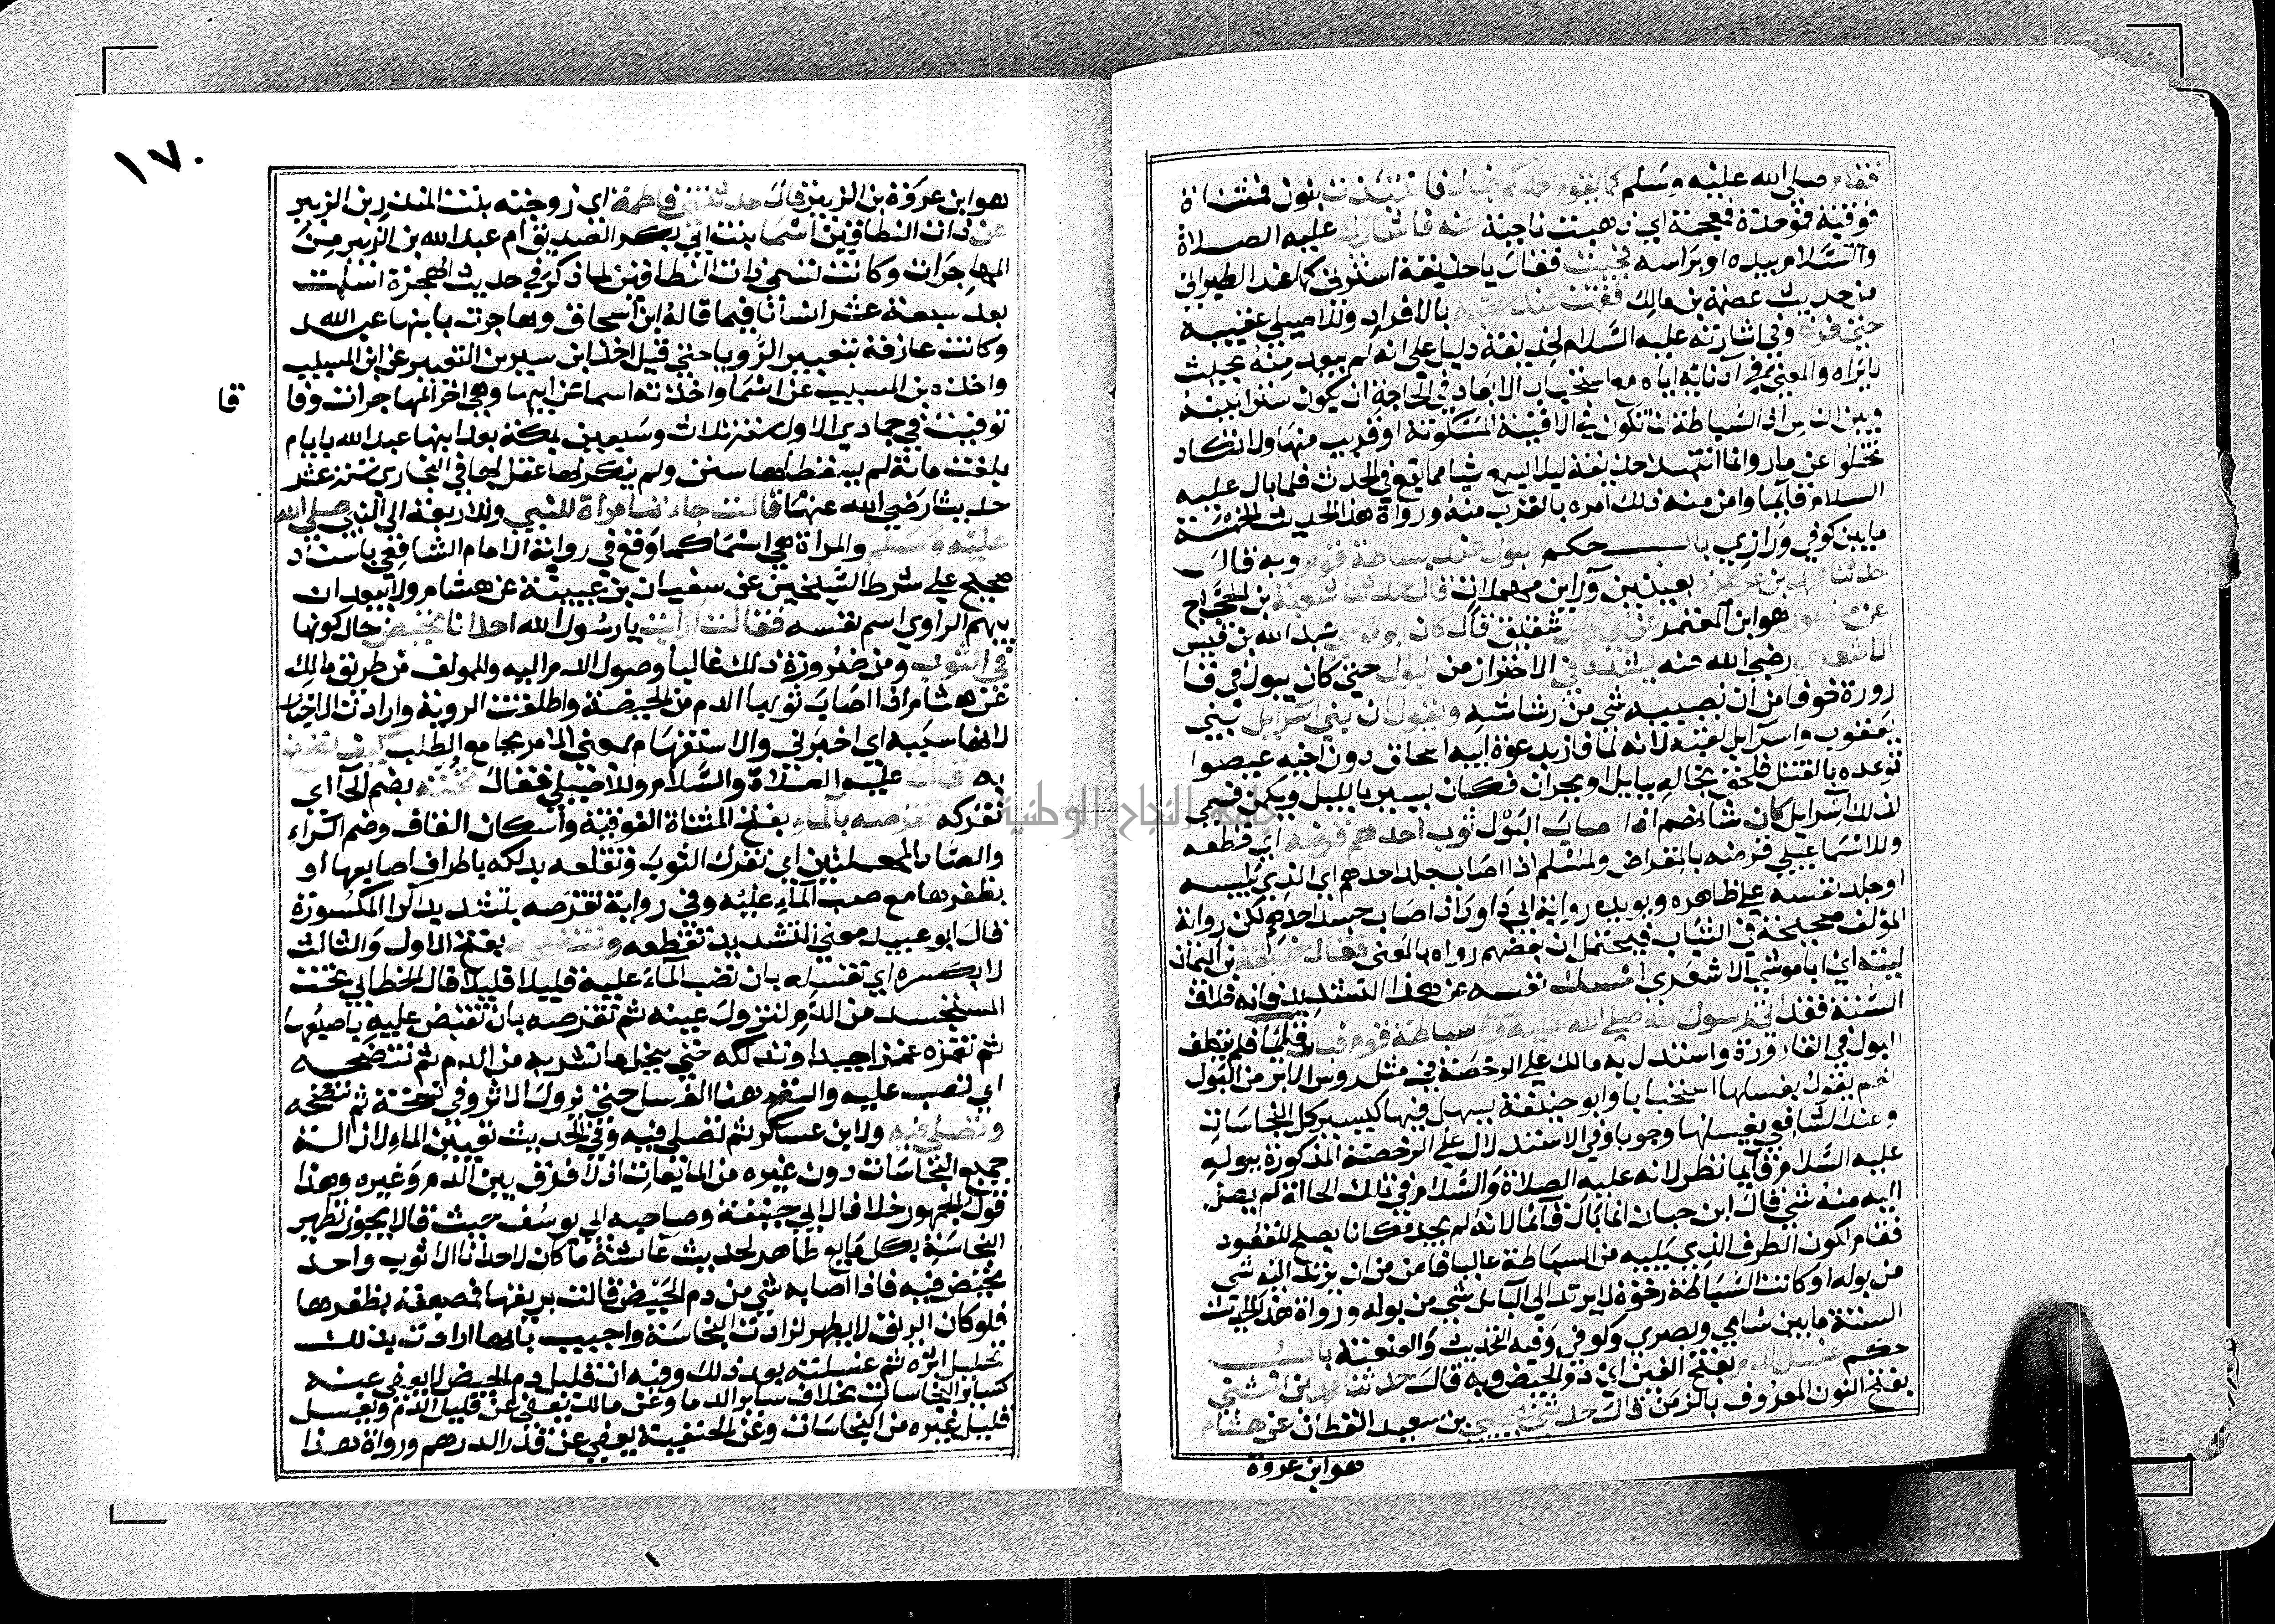 فقام صلى الله عليه وسلم كما يقوم احدكم فبال فانتبذت بنون فمثناة
فوقية فموحدة فمعجمة اي ذهبت ناحية عنه فاشار الي عليه الصلاة
والسلام بيده او براسه فجيت فقال يا حذيفة استرني كما عند الطبراني
من حديث عصمة بن مالك فقمت عند عقبه بالافراد وللاصيلي عقبيه
حتى فرغ وفي اشارته عليه السلام لحذيفة دليل على انه لم يبعد منه بحيث
لا يراه والمعنى في ادنايه اياه مع استحباب الابعاد في الحاجة ان يكون سترا بينه
وبين الناس اذ السباطة انما تكون في الافنية المسكونة او قريب منها ولا تكاد
تخلوا عن مار وانما انتبذ حذيفة ليلا يسمع شيا مما يقع في الحدث فلما بال عليه
السلام قايما وامن منه ذلك امره بالقرب منه ورواة هذا الحديث الخمسة
ما بين كوفي ورازي باب حكم البول عند سباطة قوم وبه قال
حدثنا محمد بن عرعرة بعينين وراين مهملات قال حدثنا شعبة بن الحجاج
عن منصور هو ابن المعتمر عن ابي وايل شقيق قال كان ابو موسى عبد الله بن قيس
الاشعري رضي الله عنه يشدد في الاحتراز من البول حتى كان يبول في قا
رورة خوفا من ان يصيبه شي من رشاشه ويقول ان بني اسرايل بني
يعقوب واسرايل لقبه لانه لما فاز بدعوة ابيه اسحاق دون اخيه عيصوا
توعده بالقتل فلحق بخاله ببابل او بحران فكان يسير بالليل ويكمن فسمي
لذلك اسرايل كان شانهم اذا اصاب البول ثوب احدهم قرضه اي قطعه
وللاسماعيلي قرضه بالمقراض ولمسلم اذا اصاب جلد احدهم اي الذي يلبسه
او جلد نفسه على ظاهره ويويده رواية ابي داود اذا اصاب جسد احدهم لكن رواية
المؤلف صحيحة في الثياب فيحتمل ان بعضهم رواه بالمعنى فقال حذيفة بن اليمان
ليته اي ابا موسى الاشعري امسك نفسه عن هذا التشديد فانه خلاف
السنة فقد اتى رسول الله صلى الله عليه وسلم سباطة قوم فبال قايما فلم يتكلف
البول في القارورة واستدل به مالك على الرخصة في مثل روس الابر من البول
نعم يقول بغسلها استحبابا وابو حنيفة يسهل فيها كيسير كل النجاسات
وعند الشافعي يغسلها وجوبا وفي الاستدلال على الرخصة المذكورة ببوله
عليه السلام قايما نظر لانه عليه الصلاة والسلام في تلك الحالة لم يصل
اليه منه شي قال ابن حبان انما بال قايما لانه لم يجد مكانا يصلح للقعود
فقام لكون الطرف الذي يليه من السباطة عاليا فامن من ان يرتد اليه شي
من بوله او كانت السباطة رخوة لا يرتد الي البايل شي من بوله ورواة هذا الحديث
الستة ما بين شامي وبصري وكوفي وفيه التحديث والعنعنة باب
حكم غسل الدم بفتح الغين اي دم الحيض وبه قال حدثنا محمد بن المثنى
بفتح النون المعروف بالزمن قال حدثني يحيى بن سعيد القطان عن هشام
هو ابن عروة
١٧٠
هو ابن عروة بن الزبير قال حدثتني فاطمة اي زوجته بنت المنذر بن الزبير
عن ذات النطاقين اسما بنت ابي بكر الصديق ام عبد الله بن الزبير من
المهاجرات وكانت تسمى ذات النطاقين لما ذكر في حديث الهجرة اسلمت
بعد سبعة عشر انسانا فيما قاله ابن اسحاق وهاجرت بابنها عبد الله
وكانت عارفة بتعبير الرويا حتى قيل اخذ ابن سيرين التعبير عن ابن المسيب
واخذه بن المسيب عن اسما واخذته اسما عن ابيها وهي اخر المهاجرات وفا
قا
توفيت في جمادي الاولى سنة ثلاث وسبعين بمكة بعد ابنها عبد الله بايام
بلغت ماية لم يسقط لها سن ولم ينكر لها عقل لها في البخاري ستة عشر
حديثا رضي الله عنها قالت جات امراة للنبي وللاربعة الى النبي صلى الله
عليه وسلم والمراة هي اسما كما وقع في رواية الامام الشافعي باسناد
صحيح على شرط الشيخين عن سفيان بن عيينة عن هشام ولا يبعد ان
يبهم الراوي اسم نفسه فقالت ارايت يا رسول الله احدانا تحيض حال كونها
في الثوب ومن ضرورة ذلك غالبا وصول الدم اليه وللمولف من طريق مالك
عن هشام اذا اصاب ثوبها الدم من الحيضة واطلقت الروية وارادت الاخبار
لانها سببه اي اخبرني والاستفهام بمعنى الامر بجامع الطلب كيف تصنع
به قال عليه الصلاة والسلام وللاصيلي فقال تحته بضم الحا اي
تفركه تقرصه بالماء بفتح المثناة الفوقية واسكان القاف وضم الراء
والصاد المهملتين اي تفرك الثوب وتقلعه بدلكه باطراف اصابعها او
بظفرها مع صب الماء عليه وفي رواية تقرصه بتشديد الرا المكسورة
قال ابو عبيد معنى التشديد تقطعه وتنضحه بفتح الاول والثالث
لا بكسره اي تغسله بان تصب الماء عليه قليلا قليلا قال الخطابي تحت
المستجسد من الدم لتزول عينه ثم تقرصه بان تقبض عليه باصبعها
ثم تغمزه غمزا جيدا وتدلكه حتى ينحل ما تشربه من الدم ثم تنضحه
اي تصب عليه والنضح هنا الغسل حتى يزول الاثر وفي نسخة ثم تنضحه
وتصلي فيه ولابن عساكر ثم تصلي فيه وفي الحديث تعيين الماء لازالة
جميع النجاسات دون غيره من المايعات اذ لا فرق بين الدم وغيره وهذا
قول الجمهور خلافا لابي حنيفة وصاحبه ابي يوسف حيث قالا يجوز تطهير
النجاسة بكل مايع طاهر لحديث عائشة ما كان لاحدانا الا ثوب واحد
تحيض فيه فاذا اصابه شي من دم الحيض قالت بريقها فمصعته بظفرها
فلو كان الريق لا يطهر لزادت النجاسة واجيب بانها ارادت بذلك
تحليل اثره ثم غسلته بعد ذلك وفيه ان قليل دم الحيض لا يعفى عنه
كساير النجاسات بخلاف ساير الدما وعن مالك يعفى عن قليل الدم ويغسل
قليل غيره من النجاسات وعن الحنفية يعفى عن قدر الدرهم ورواة هذا
جامعة النجاح الوطنية